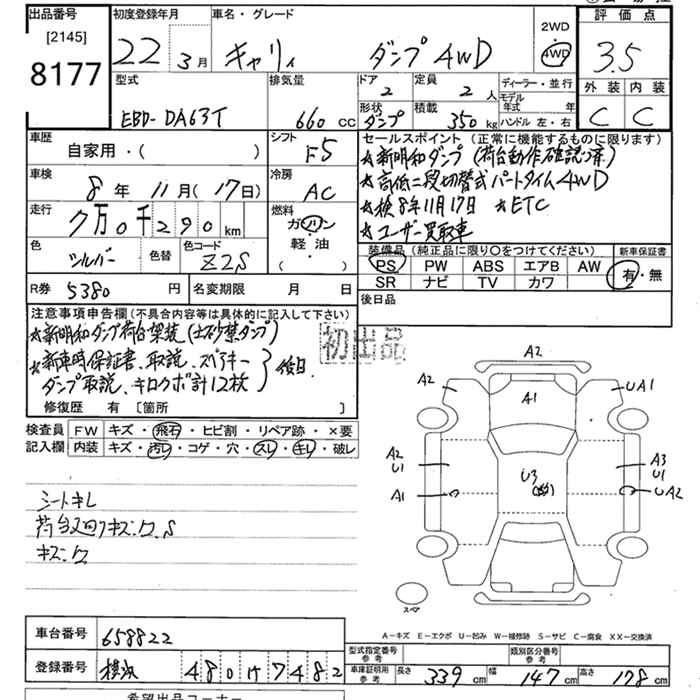 出品番号
[2145]
8177
初度登録年月
22年 3月
車名・グレード
キャリィ ダンプ 4WD
2WD
4WD
評価点
3.5
外装 内装
C C
型式
EBD-DA63T
排気量
660 cc
ドア
2
定員
2人
形状
ダンプ
積載
350 kg
ディーラー・並行
モデル年式 年
ハンドル 左・右
車歴
自家用・( )
シフト
F5
車検
8年 11月(17日)
冷房
AC
走行
7万0千290km
燃料
ガソリン
軽油
( )
色
シルバー
色替
色コード
Z2S
R券 5380 円
名変期限 月 日
セールスポイント(正常に機能するものに限ります)
★新明和ダンプ(荷台動作確認済)
★高低二段切替式パートタイム4WD
★検8年11月17日 ★ETC
★ユーザー買取車
装備品(純正品に限り〇をつけてください)
新車保証書
PS PW ABS エアB AW
SR ナビ TV カワ
有・無
後日品
注意事項申告欄(不具合内容等は具体的に記入して下さい)
★新明和ダンプ荷台架装(土砂禁ダンプ)
★新車時保証書、取説、スペアキー
ダンプ取説、キロクボ計12枚 } 後日
修復歴 有 [箇所 ]
初出品
検査員
記入欄
FW キズ・飛石・ヒビ割・リペア跡・×要
内装 キズ・汚レ・コゲ・穴・スレ・キレ・破レ
シートキレ
荷台廻リキズ、ワ、S
キズ、ワ
A2
A2
A1
UA1
A2
U1
A1
U3
A3
U1
UA2
スペア
A-キズ E-エクボ U-凹み W-補修跡 S-サビ C-腐食 XX-交換済
車台番号 658822
登録番号 横浜 480け7482
型式指定番号
参考
類別区分番号
参考
車庫証明用
参考
長さ 339 cm 幅 147 cm 高さ 178 cm
希望出品コーナー